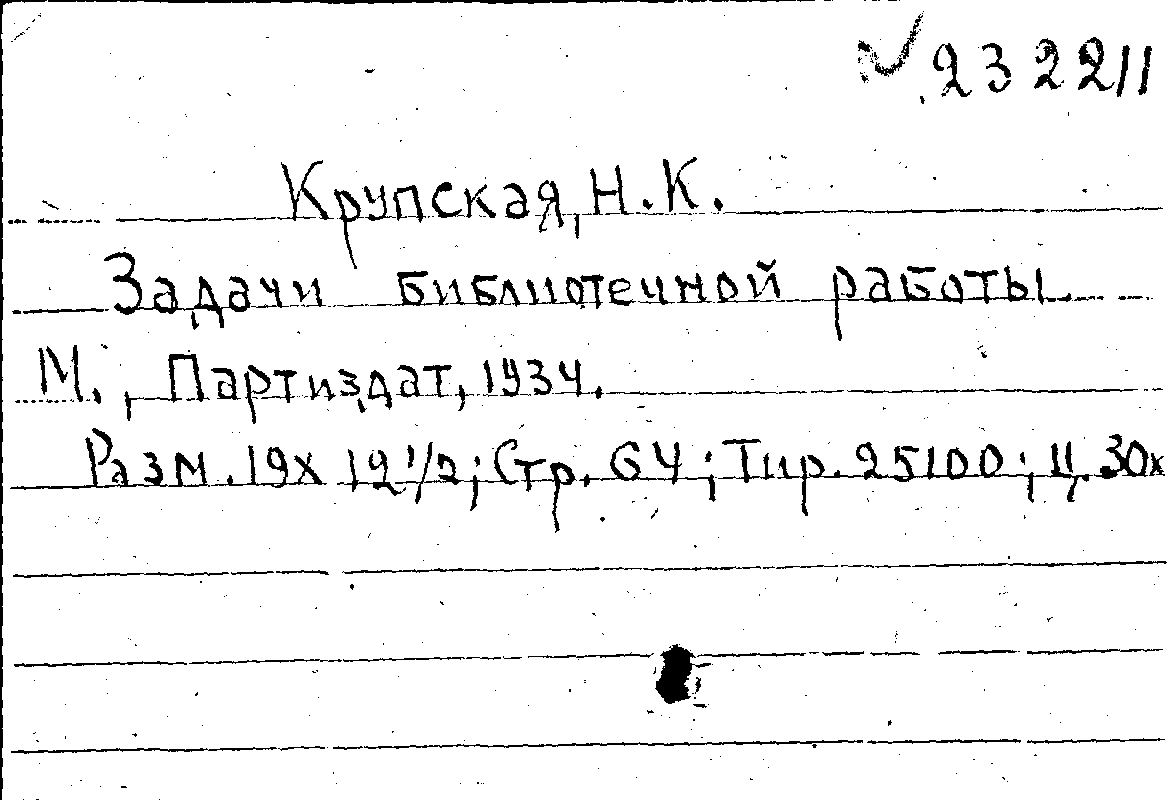 232211
Крупская, Н.К.
Задачи библиотечной работы
М., Партиздат, 1934.
Разм. 19х 12 1/2; Стр. 64; Тир. 25100; Ц. 30к